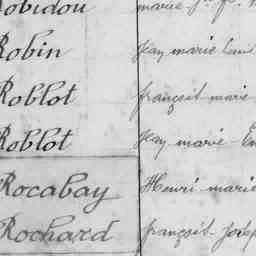 Robidou marie
Robin Jean marie
Roblot françois marie
Roblot Jean marie
Rocabay Henri marie
Rochard françois Joseph